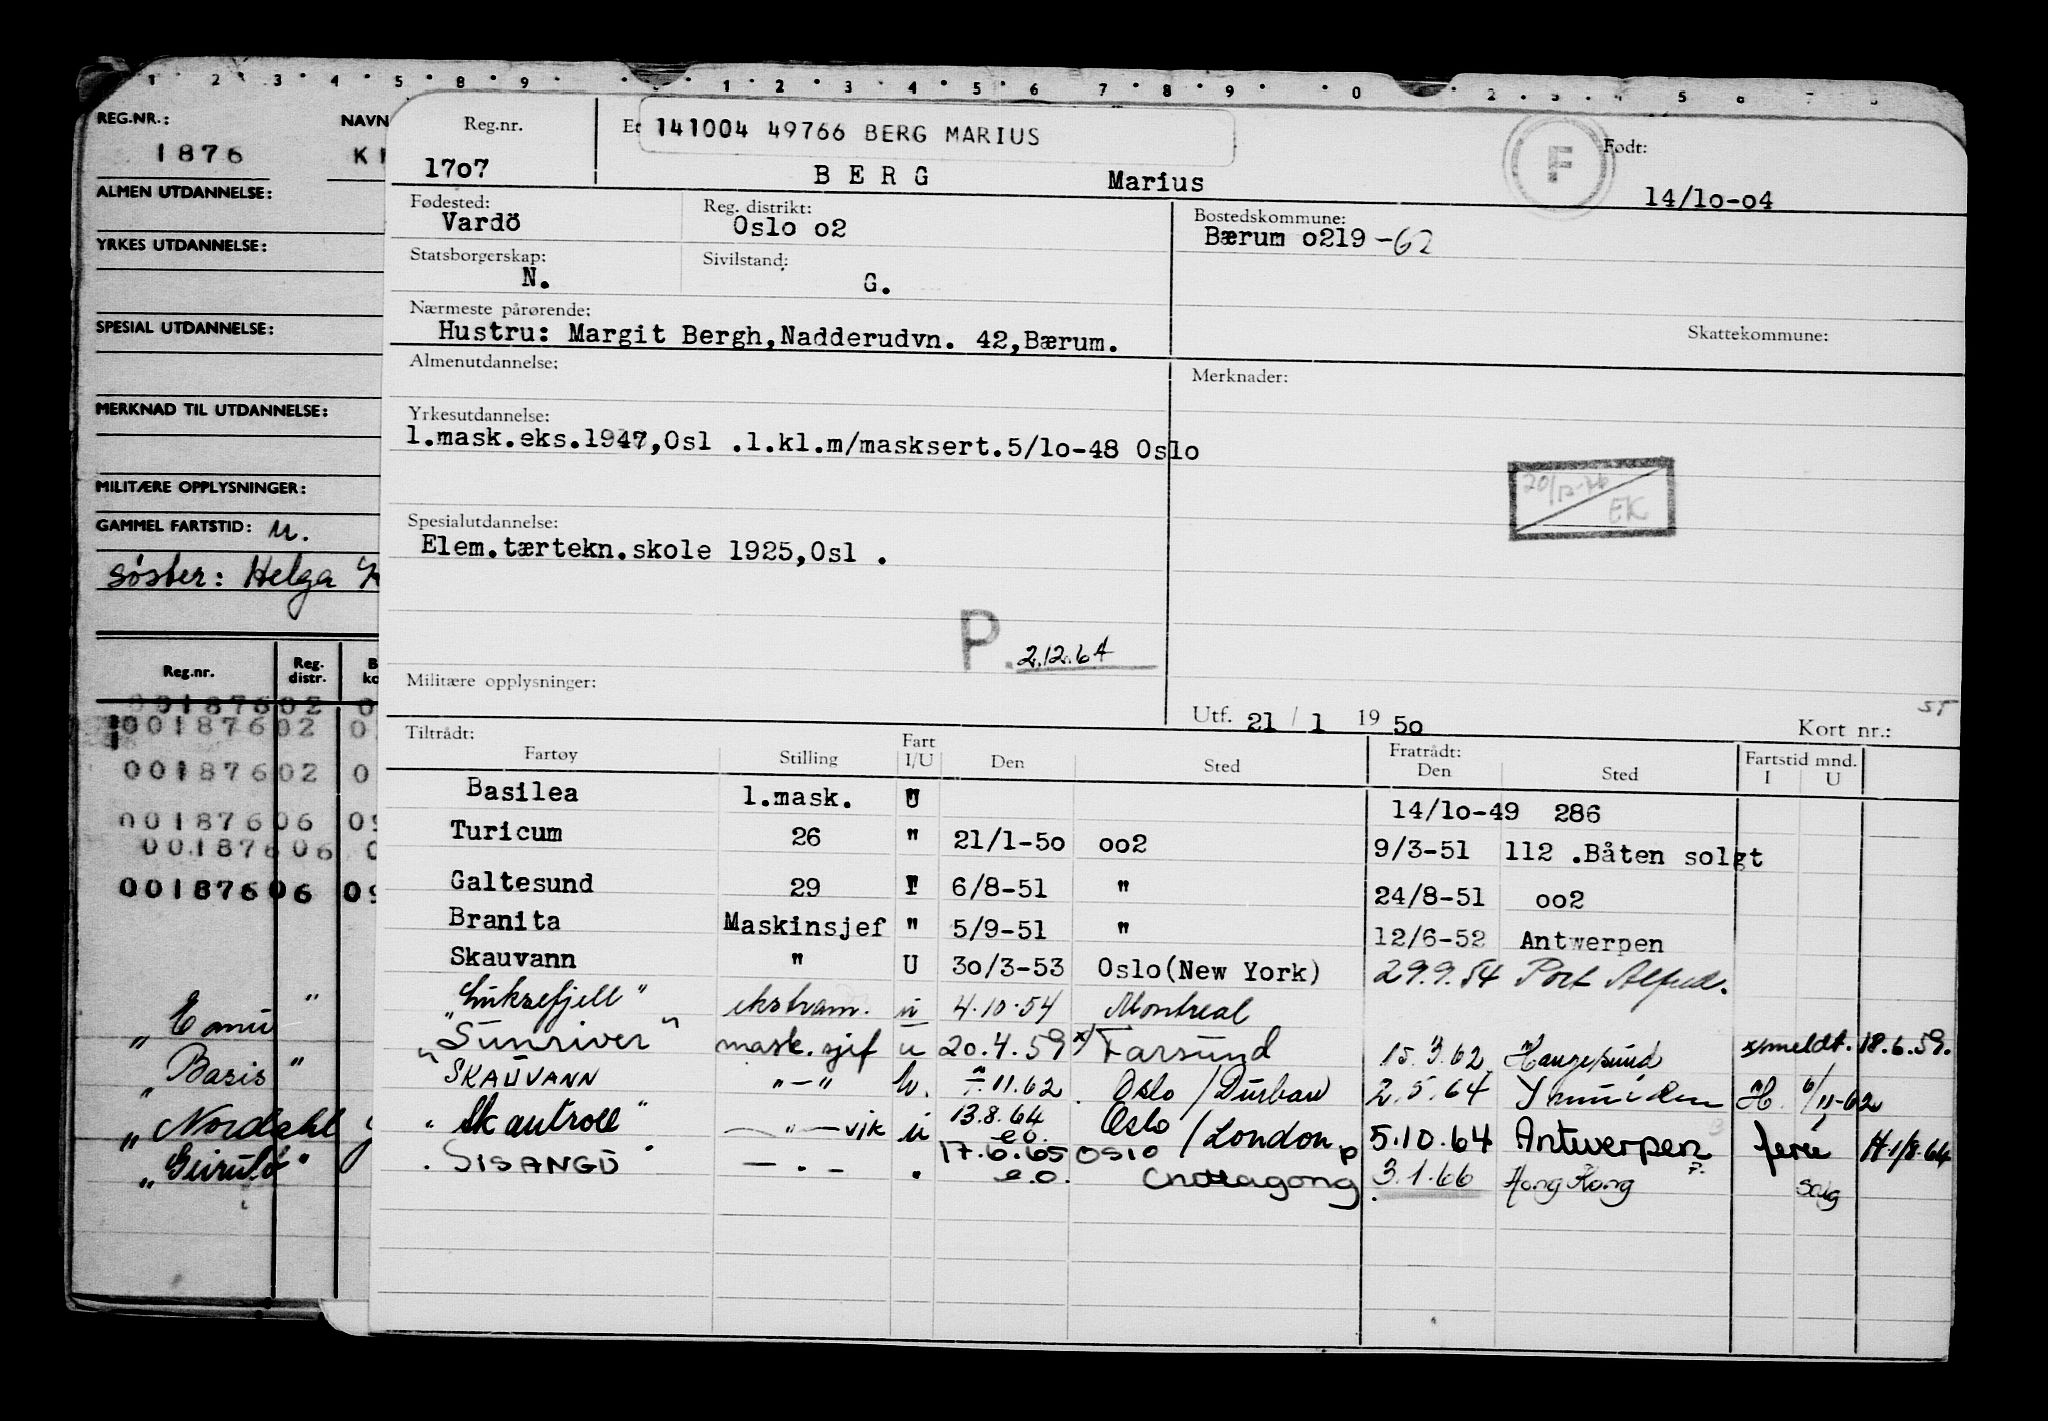 1 2 3 4 5 8 9 1 2 3 4 5 6 7 8 9 0 2 3 4 5 6 7 8
REG.NR.:
NAVN
1876
ALMEN UTDANNELSE:
YRKES UTDANNELSE:
SPESIAL UTDANNELSE:
MERKNAD TIL UTDANNELSE:
MILITÆRE OPPLYSNINGER:
GAMMEL FARTSTID: u.
søster: Helga
Reg.nr. Reg. distr.
00187602 0
00187602 0
00187602 0
00187606 09
00187606 0
00187606 09
"Basis"
"Nordahl
Reg.nr.
1707
141004 49766 BERG MARIUS
BERG Marius
F
Født:
14/10-04
Fødested:
Vardö
Reg. distrikt:
Oslo 02
Bostedskommune:
Bærum 0219 -62
Statsborgerskap:
N.
Sivilstand:
G.
Nærmeste pårørende:
Hustru: Margit Bergh,Nadderudvn. 42,Bærum.
Skattekommune:
Almenutdannelse:
Merknader:
Yrkesutdannelse:
1.mask.eks.1947,Osl .1.kl.m/masksert.5/10-48 Oslo
EK
Spesialutdannelse:
Elem.tærtekn.skole 1925,Osl .
P. 2.12.64
Militære opplysninger:
Utf. 21 / 1 19 50
Kort nr.:
Tiltrådt:
Fartøy Stilling Fart I/U Den Sted Fratrådt: Den Sted Fartstid mnd. I U
Basilea 1.mask. U 14/10-49 286
Turicum 26 " 21/1-50 002 9/3-51 112 .Båten solgt
Galtesund 29 I 6/8-51 " 24/8-51 002
Branita Maskinsjef " 5/9-51 " 12/6-52 Antwerpen
Skauvann " U 30/3-53 Oslo(New York) 29.9.54 Port Alfred.
"Luksefjell" ekstram. u 4.10.54 Montreal
"Sunriver" mask.sjef u 20.4.59 x/ Farsund 15.3.62 Haugesund x/meldt. 18.6.59.
SKAUVANN "—" 11.62 Oslo / Durban 2.5.64 Ymuiden H. 6/11-62
"Skautroll" — " — vik u 13.8.64 e.o. Oslo / London p 5.10.64 Antwerpen ferie H.1/8.64
"SISANGU" — " — " 17.6.65 e.o. OSLO Chittagong 3.1.66 Hong Kong P. Salg